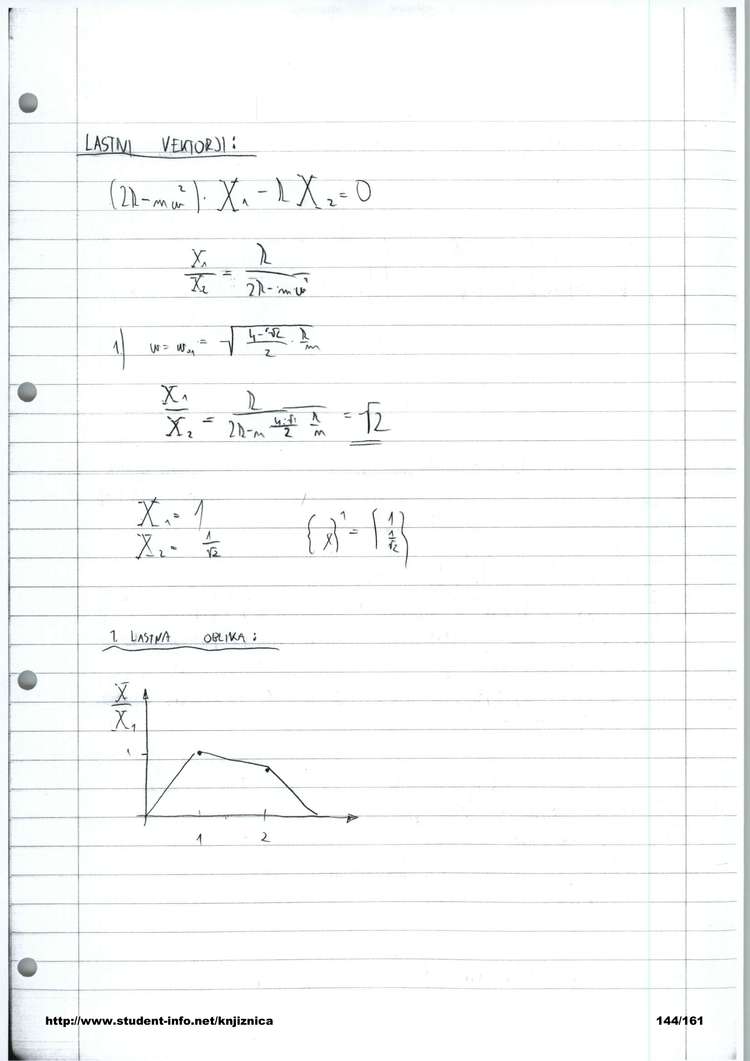 LASTNI VEKTORJI:
(2k-mω²)·X₁-kX₂=0
X₁/X₂ = k/(2k-mω²)
1) ω=ω₀₁= √((4-2√2)/2 · k/m)
X₁/X₂ = k/(2k-m k/m) = √2
X₁= 1
X₂= 1/√2
{X}¹ = {1 1/√2}
1. LASTNA OBLIKA:
X/X₁
1
1 2
http://www.student-info.net/knjiznica 144/161